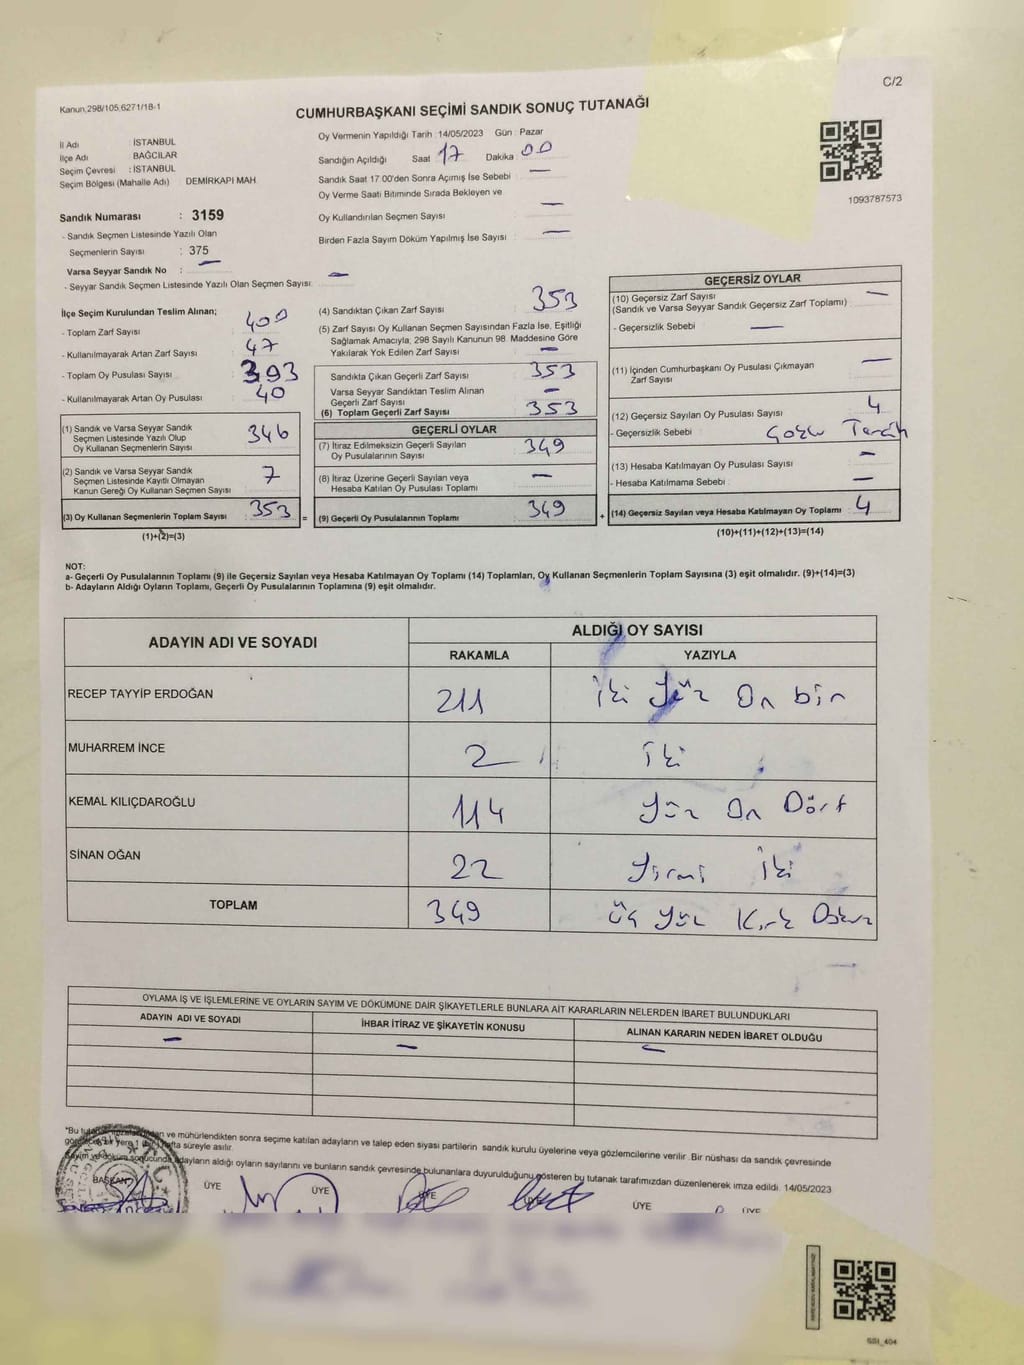 C/2
Kanun,298/105,6271/18-1
CUMHURBAŞKANI SEÇİMİ SANDIK SONUÇ TUTANAĞI
İl Adı : İSTANBUL
İlçe Adı BAĞCILAR
Seçim Çevresi : İSTANBUL
Seçim Bölgesi (Mahalle Adı) DEMİRKAPI MAH
Sandık Numarası : 3159
- Sandık Seçmen Listesinde Yazılı Olan
Seçmenlerin Sayısı : 375
Varsa Seyyar Sandık No : —
- Seyyar Sandık Seçmen Listesinde Yazılı Olan Seçmen Sayısı: —
Oy Vermenin Yapıldığı Tarih : 14/05/2023 Gün : Pazar
Sandığın Açıldığı Saat 17 Dakika 00
Sandık Saat 17.00'den Sonra Açımış İse Sebebi —
Oy Verme Saati Bitiminde Sırada Bekleyen ve
Oy Kullandırılan Seçmen Sayısı —
Birden Fazla Sayım Döküm Yapılmış İse Sayısı —
1093787573
İlçe Seçim Kurulundan Teslim Alınan;
- Toplam Zarf Sayısı 400
- Kullanılmayarak Artan Zarf Sayısı 47
- Toplam Oy Pusulası Sayısı 393
- Kullanılmayarak Artan Oy Pusulası 40
(1) Sandık ve Varsa Seyyar Sandık
Seçmen Listesinde Yazılı Olup
Oy Kullanan Seçmenlerin Sayısı 346
(2) Sandık ve Varsa Seyyar Sandık
Seçmen Listesinde Kayıtlı Olmayan
Kanun Gereği Oy Kullanan Seçmen Sayısı 7
(3) Oy Kullanan Seçmenlerin Toplam Sayısı : 353 =
(1)+(2)=(3)
(4) Sandıktan Çıkan Zarf Sayısı 353
(5) Zarf Sayısı Oy Kullanan Seçmen Sayısından Fazla İse, Eşitliği
Sağlamak Amacıyla, 298 Sayılı Kanunun 98. Maddesine Göre
Yakılarak Yok Edilen Zarf Sayısı —
Sandıkta Çıkan Geçerli Zarf Sayısı 353
Varsa Seyyar Sandıktan Teslim Alınan
Geçerli Zarf Sayısı —
(6) Toplam Geçerli Zarf Sayısı 353
GEÇERLİ OYLAR
(7) İtiraz Edilmeksizin Geçerli Sayılan
Oy Pusulalarının Sayısı 349
(8) İtiraz Üzerine Geçerli Sayılan veya
Hesaba Katılan Oy Pusulası Toplamı —
(9) Geçerli Oy Pusulalarının Toplamı 349 +
GEÇERSİZ OYLAR
(10) Geçersiz Zarf Sayısı —
(Sandık ve Varsa Seyyar Sandık Geçersiz Zarf Toplamı)
- Geçersizlik Sebebi —
(11) İçinden Cumhurbaşkanı Oy Pusulası Çıkmayan
Zarf Sayısı —
(12) Geçersiz Sayılan Oy Pusulası Sayısı 4
- Geçersizlik Sebebi
(13) Hesaba Katılmayan Oy Pusulası Sayısı —
- Hesaba Katılmama Sebebi —
(14) Geçersiz Sayılan veya Hesaba Katılmayan Oy Toplamı 4
(10)+(11)+(12)+(13)=(14)
NOT:
a- Geçerli Oy Pusulalarının Toplamı (9) ile Geçersiz Sayılan veya Hesaba Katılmayan Oy Toplamı (14) Toplamları, Oy Kullanan Seçmenlerin Toplam Sayısına (3) eşit olmalıdır. (9)+(14)=(3)
b- Adayların Aldığı Oyların Toplamı, Geçerli Oy Pusulalarının Toplamına (9) eşit olmalıdır.
ADAYIN ADI VE SOYADI ALDIĞI OY SAYISI
RAKAMLA YAZIYLA
RECEP TAYYİP ERDOĞAN 211 İki Yüz On bir
MUHARREM İNCE 2 İki
KEMAL KILIÇDAROĞLU 114 Yüz On Dört
SİNAN OĞAN 22 Yirmi İki
TOPLAM 349 Üç Yüz Kırk Dokuz
OYLAMA İŞ VE İŞLEMLERİNE VE OYLARIN SAYIM VE DÖKÜMÜNE DAİR ŞİKAYETLERLE BUNLARA AİT KARARLARIN NELERDEN İBARET BULUNDUKLARI
ADAYIN ADI VE SOYADI İHBAR İTİRAZ VE ŞİKAYETİN KONUSU ALINAN KARARIN NEDEN İBARET OLDUĞU
— — —
ve mühürlendikten sonra seçime katılan adayların ve talep eden siyasi partilerin sandık kurulu üyelerine veya gözlemcilerine verilir. Bir nüshası da sandık çevresinde
süreyle asılır.
adayların aldığı oyların sayılarını ve bunların sandık çevresinde bulunanlara duyurulduğunu gösteren bu tutanak tarafımızdan düzenlenerek imza edildi. 14/05/2023
BAŞKAN ÜYE ÜYE ÜYE ÜYE ÜYE ÜYE
SSI_404